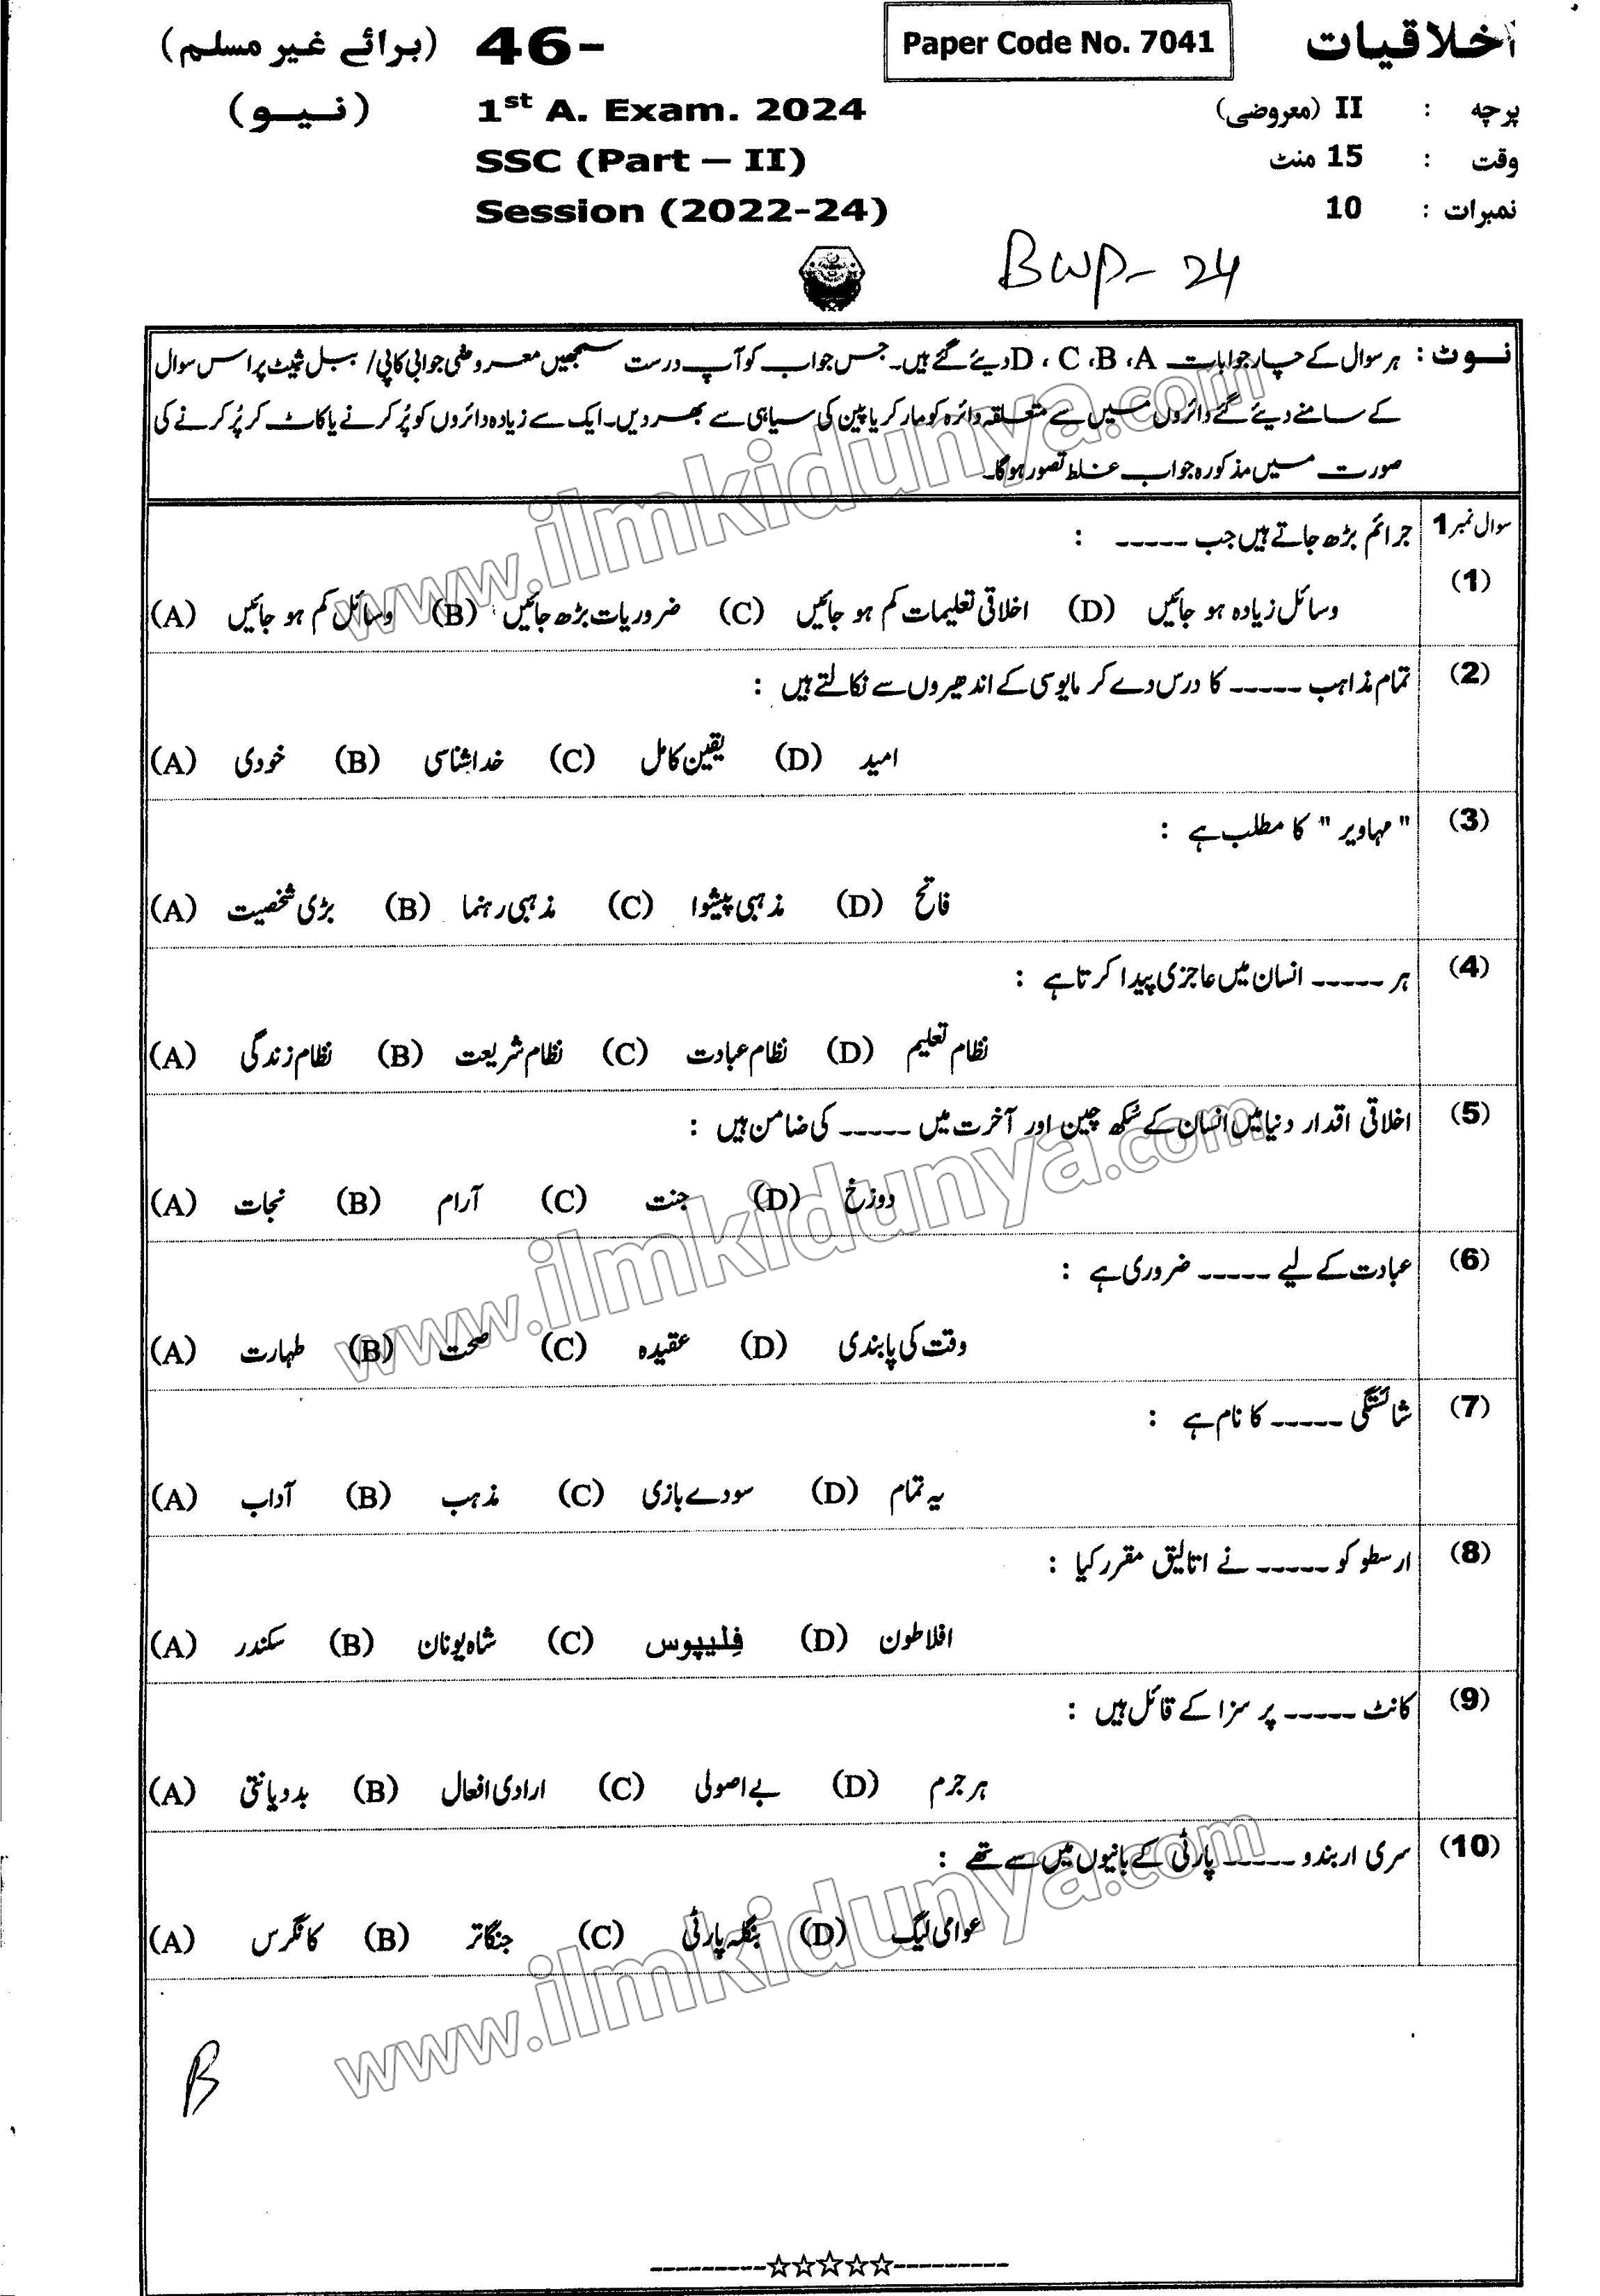 اخلاقیات Paper Code No. 7041 46- (برائے غیر مسلم)
پرچہ : II (معروضی) 1st A. Exam. 2024 (نیو)
وقت : 15 منٹ SSC (Part – II)
نمبرات : 10 Session (2022-24)
BWP- 24
نوٹ : ہر سوال کے چار جوابات A، B، C، D دیئے گئے ہیں۔ جس جواب کو آپ درست سمجھیں معروضی جوابی کاپی / ببل شیٹ پر اس سوال
کے سامنے دیئے گئے دائروں میں سے متعلقہ دائرہ کو مارکر یا پین کی سیاہی سے بھر دیں۔ ایک سے زیادہ دائروں کو پُر کرنے یا کاٹ کر پُر کرنے کی
صورت میں مذکورہ جواب غلط تصور ہوگا۔
سوال نمبر 1 جرائم بڑھ جاتے ہیں جب ----- :
(1) (A) وسائل کم ہو جائیں (B) ضروریات بڑھ جائیں (C) اخلاقی تعلیمات کم ہو جائیں (D) وسائل زیادہ ہو جائیں
(2) تمام مذاہب ----- کا درس دے کر مایوسی کے اندھیروں سے نکالتے ہیں :
(A) خودی (B) خدا شناسی (C) یقین کامل (D) امید
(3) "مہاویر" کا مطلب ہے :
(A) بڑی شخصیت (B) مذہبی رہنما (C) مذہبی پیشوا (D) فاتح
(4) ہر ----- انسان میں عاجزی پیدا کرتا ہے :
(A) نظام زندگی (B) نظام شریعت (C) نظام عبادت (D) نظام تعلیم
(5) اخلاقی اقدار دنیا میں انسان کے سُکھ چین اور آخرت میں ----- کی ضامن ہیں :
(A) نجات (B) آرام (C) جنت (D) دوزخ
(6) عبادت کے لیے ----- ضروری ہے :
(A) طہارت (B) صحت (C) عقیدہ (D) وقت کی پابندی
(7) شائستگی ----- کا نام ہے :
(A) آداب (B) مذہب (C) سودے بازی (D) یہ تمام
(8) ارسطو کو ----- نے اتالیق مقرر کیا :
(A) سکندر (B) شاہ یونان (C) فلیپوس (D) افلاطون
(9) کانٹ ----- پر سزا کے قائل ہیں :
(A) بددیانتی (B) ارادی افعال (C) بے اصولی (D) ہر جرم
(10) سری اربندو ----- پارٹی کے بانیوں میں سے تھے :
(A) کانگرس (B) جنگاتر (C) بنگلہ پارٹی (D) عوامی لیگ
B
www.ilmkidunya.com
www.ilmkidunya.com
www.ilmkidunya.com